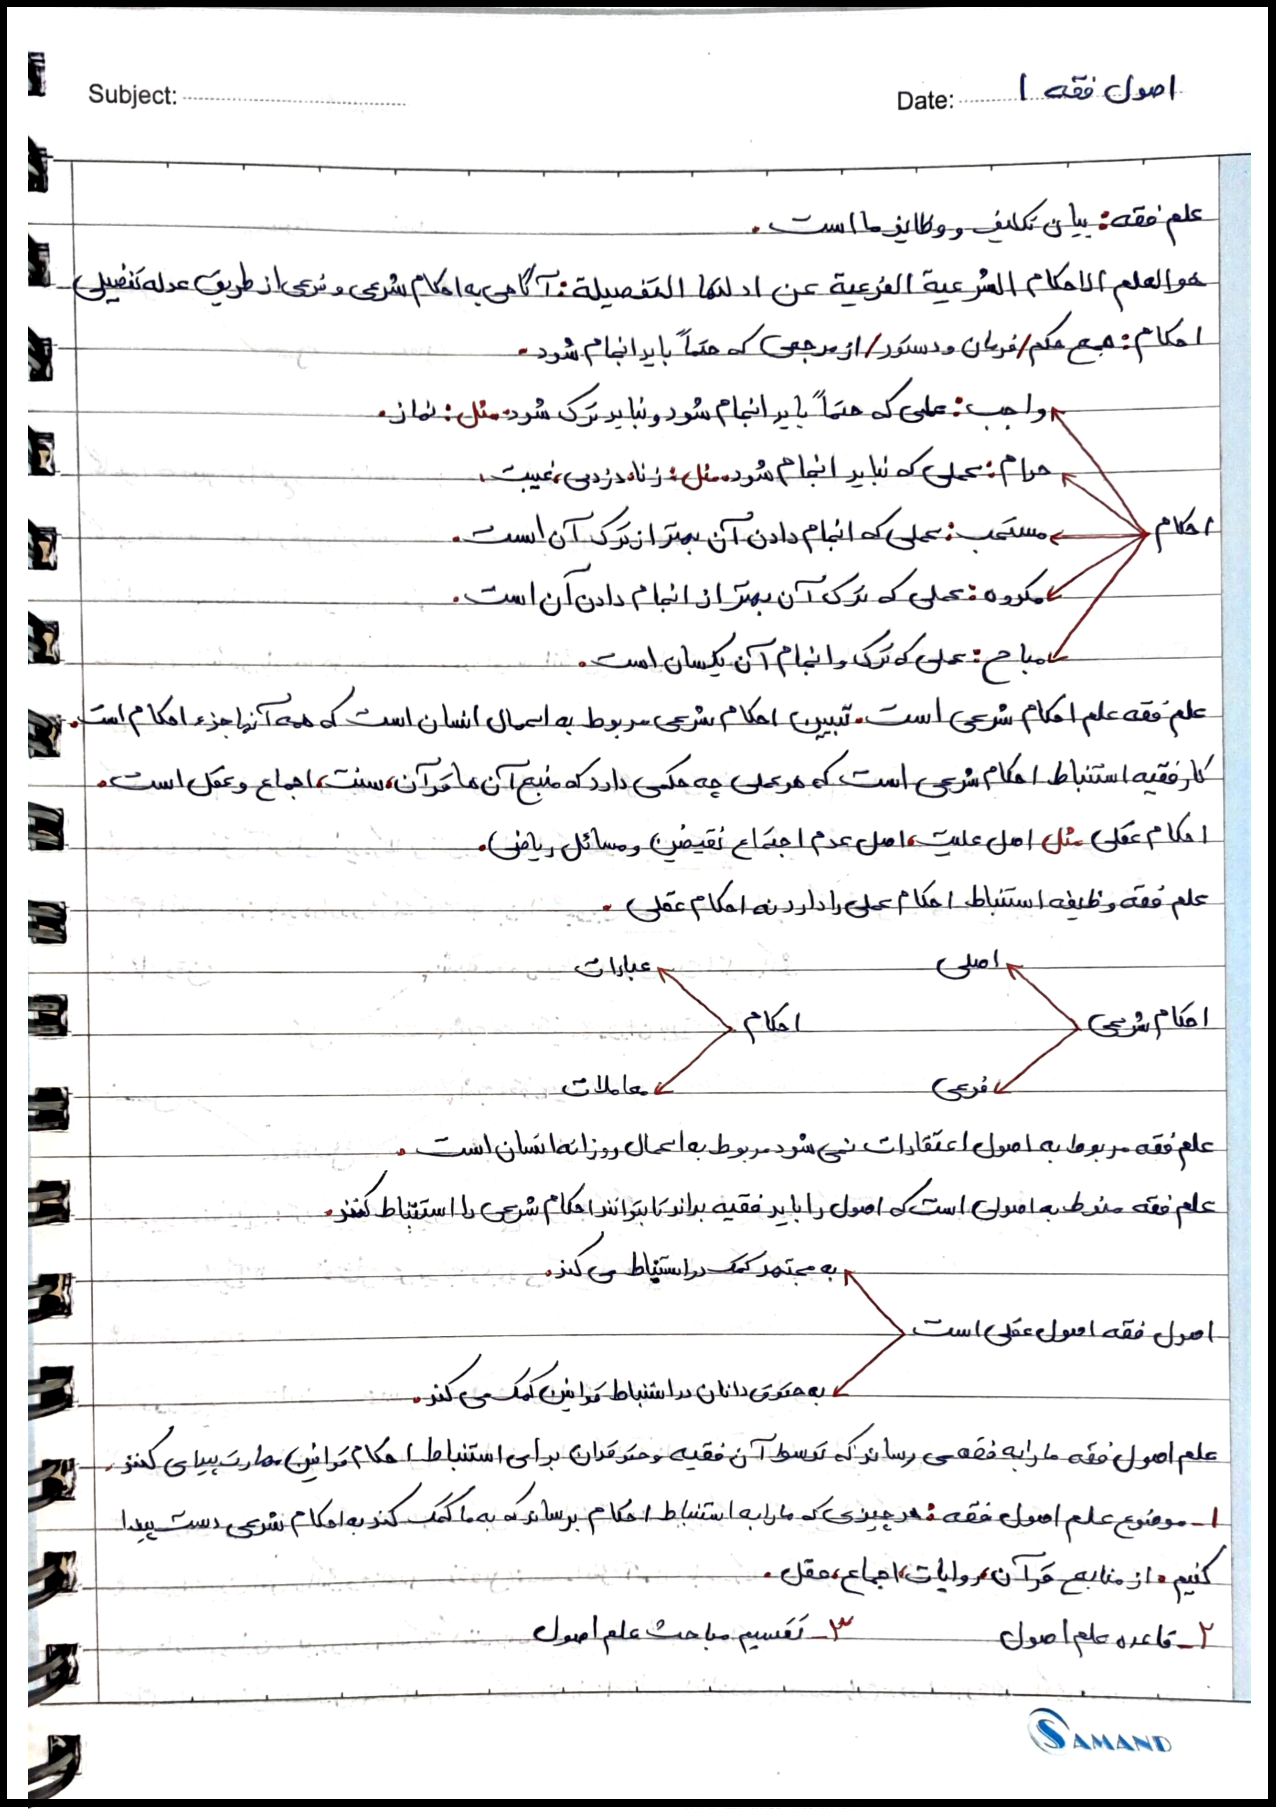 Subject:
Date: اصول فقه ۱
علم فقه: بیان تکلیف و وظایف ما است.
هو العلم الاحکام الشرعیة الفرعیة عن ادلتها التفصیلة: آگاهی به احکام شرعی و فرعی از طریق عدله تفضیلی
احکام: جمع حکم/فرمان و دستور/از مرجعی که حتماً باید انجام شود.
واجب: عملی که حتماً باید انجام شود و نباید ترک شود. مثل: نماز.
حرام: عملی که نباید انجام شود. مثل: زنا، دزدی، غیبت.
احکام
مستحب: عملی که انجام دادن آن بهتر از ترک آن است.
مکروه: عملی که ترک آن بهتر از انجام دادن آن است.
مباح: عملی که ترک و انجام آن یکسان است.
علم فقه علم احکام شرعی است. تبیین احکام شرعی مربوط به اعمال انسان است که همه آنها جزء احکام است.
کار فقیه استنباط احکام شرعی است که هر عملی چه حکمی دارد که منبع آن ها قرآن، سنت، اجماع و عقل است.
احکام عقلی مثل اصل علیت، اصل عدم اجتماع نقیضین و مسائل ریاضی.
علم فقه وظیفه استنباط احکام عملی را دارد نه احکام عقلی.
اصلی عبادات
احکام شرعی احکام
فرعی معاملات
علم فقه مربوط به اصول اعتقادات نمی شود مربوط به اعمال روزانه انسان است.
علم فقه منوط به اصولی است که اصول را باید فقیه بداند تا بتوانند احکام شرعی را استنباط کنند.
به مجتهد کمک در استنباط می کند.
اصول فقه اصول عقلی است
به حقوق دانان در استنباط قوانین کمک می کند.
علم اصول فقه ما را به فقهی رساند که توسط آن فقیه و حقوقدان برای استنباط احکام قوانین مهارت پیدا می کنند.
۱- موضوع علم اصول فقه: هر چیزی که ما را به استنباط احکام برساند که به ما کمک کند به احکام شرعی دست پیدا
کنیم. از منابع قرآن، روایات، اجماع، عقل.
۲- قاعده علم اصول ۳- تقسیم مباحث علم اصول
SAMAND